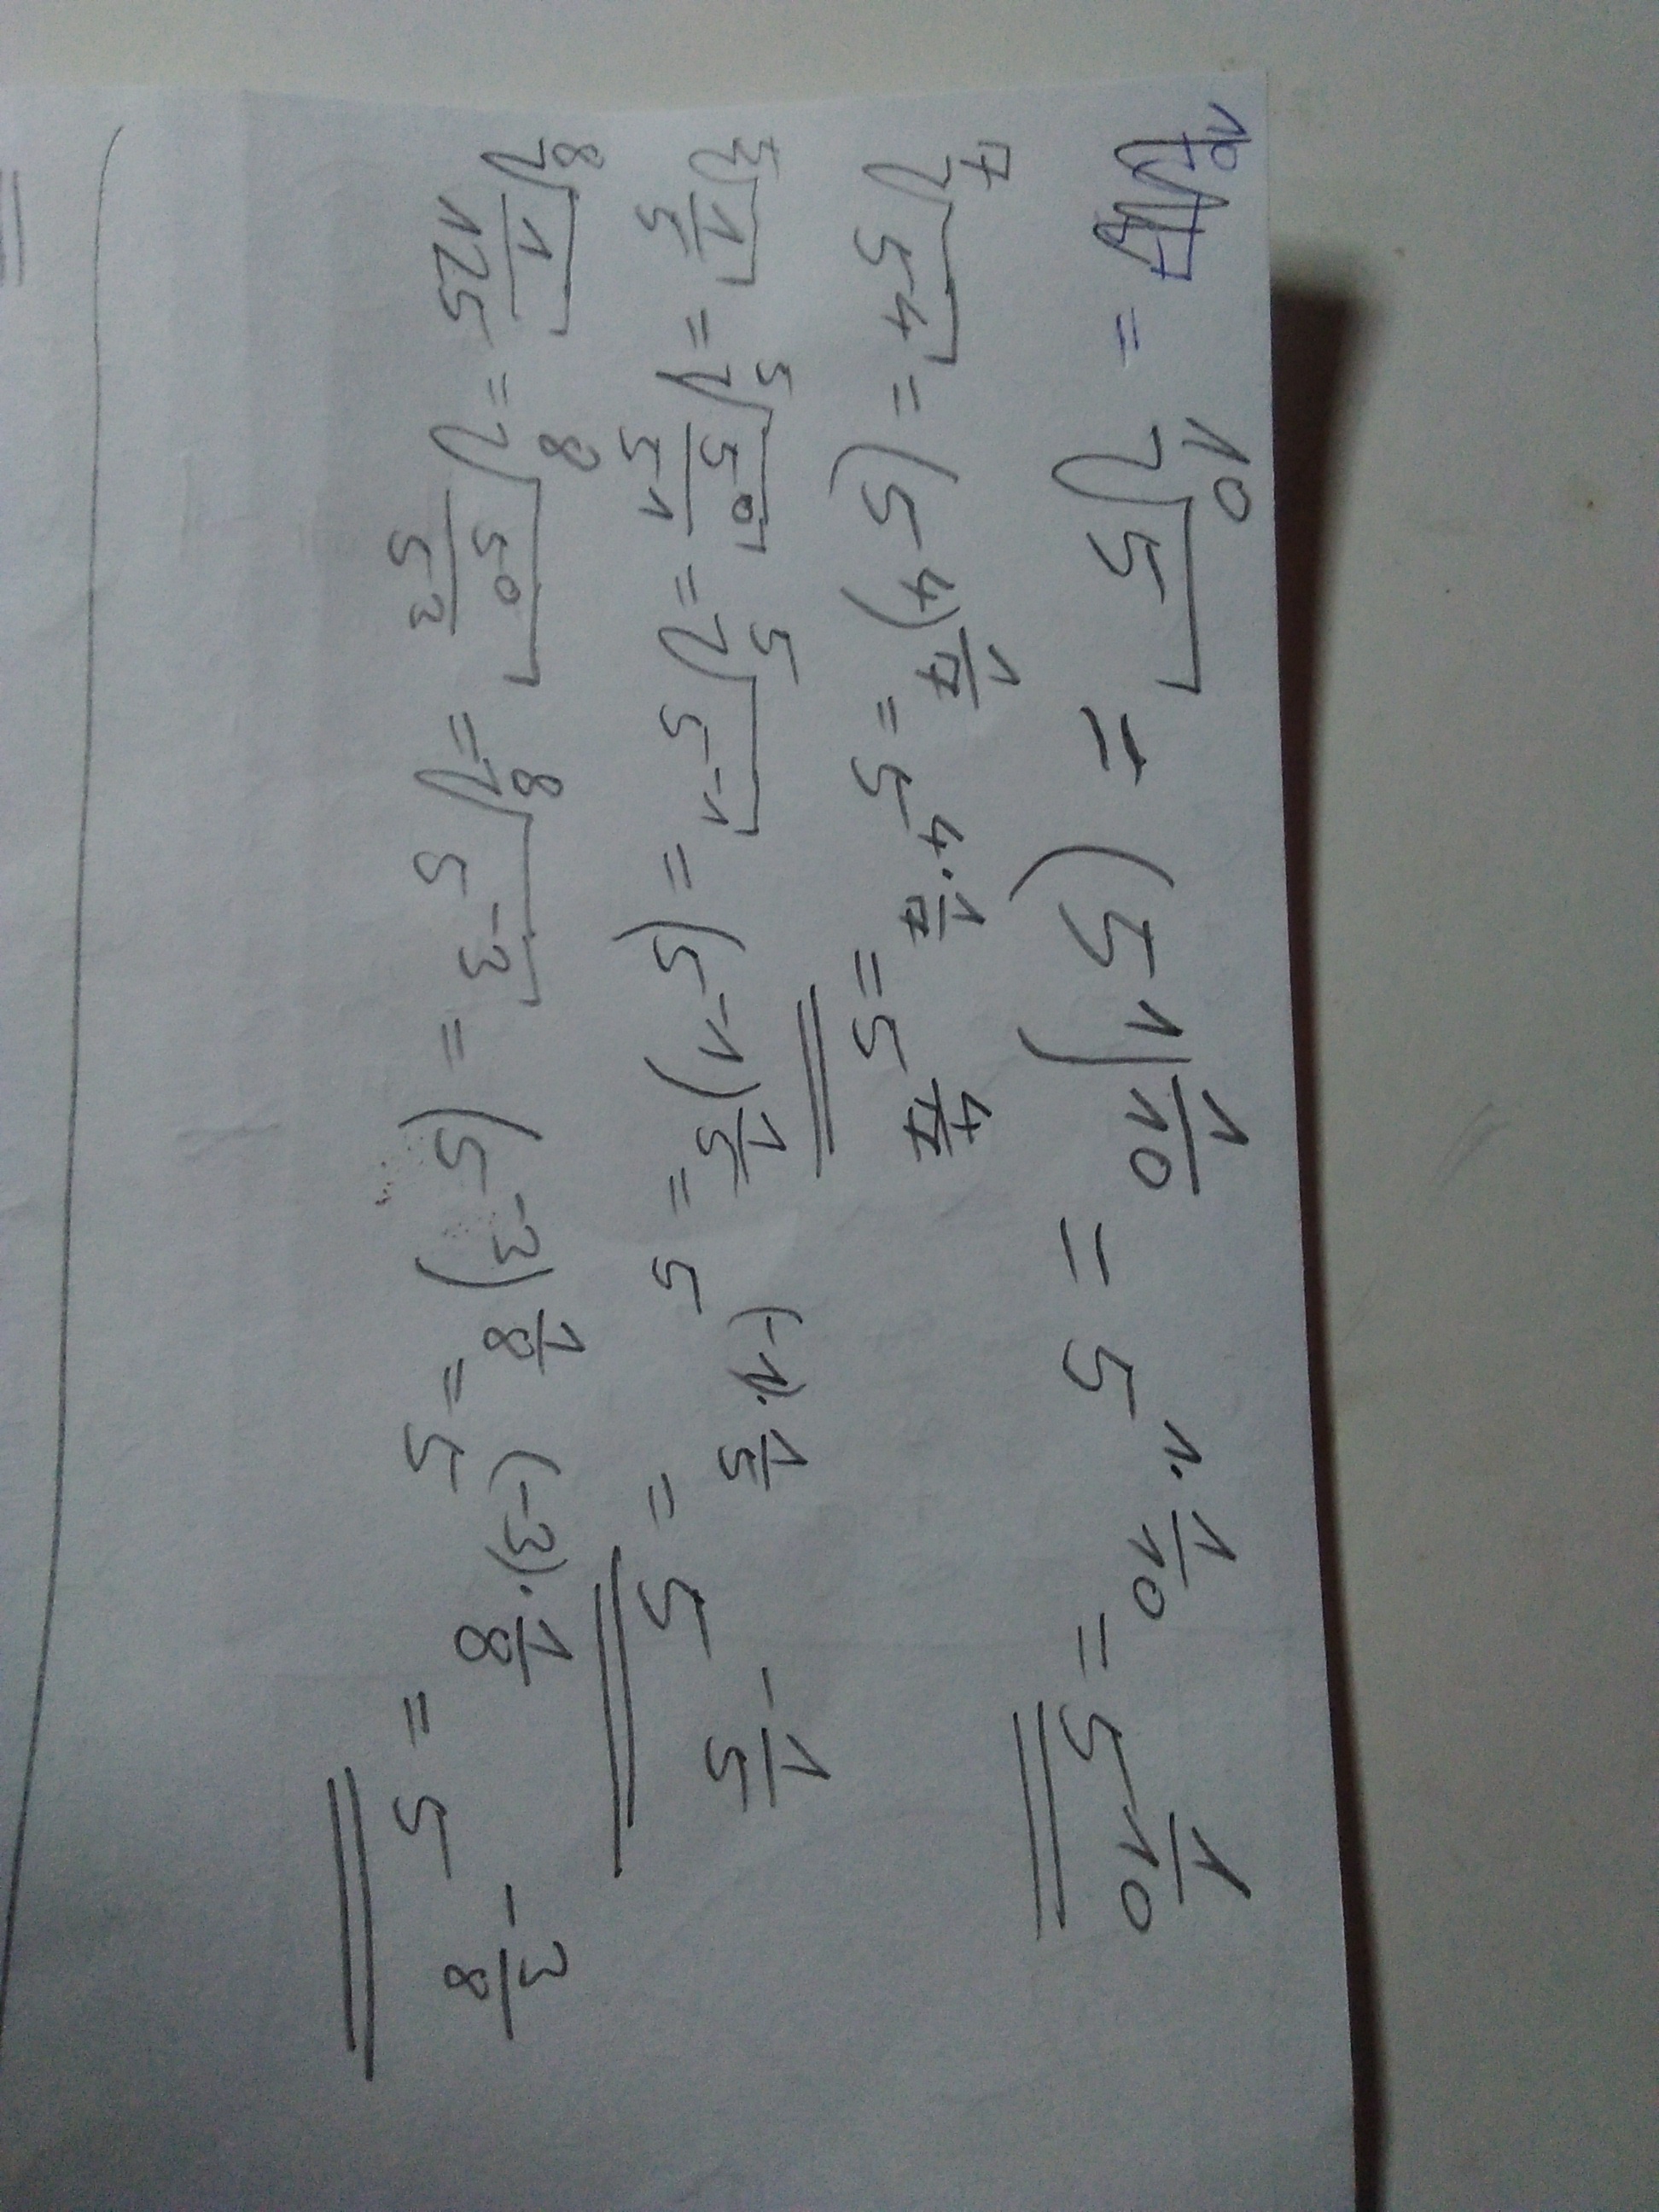 = ¹⁰√5 = (5¹)^(1/10) = 5^(1·1/10) = 5^(1/10)
⁷√5⁴ = (5⁴)^(1/7) = 5^(4·1/7) = 5^(4/7)
⁵√(1/5) = ⁵√(5⁰/5¹) = ⁵√5⁻¹ = (5⁻¹)^(1/5) = 5^((-1)·1/5) = 5^(-1/5)
⁸√(1/125) = ⁸√(5⁰/5³) = ⁸√5⁻³ = (5⁻³)^(1/8) = 5^((-3)·1/8) = 5^(-3/8)